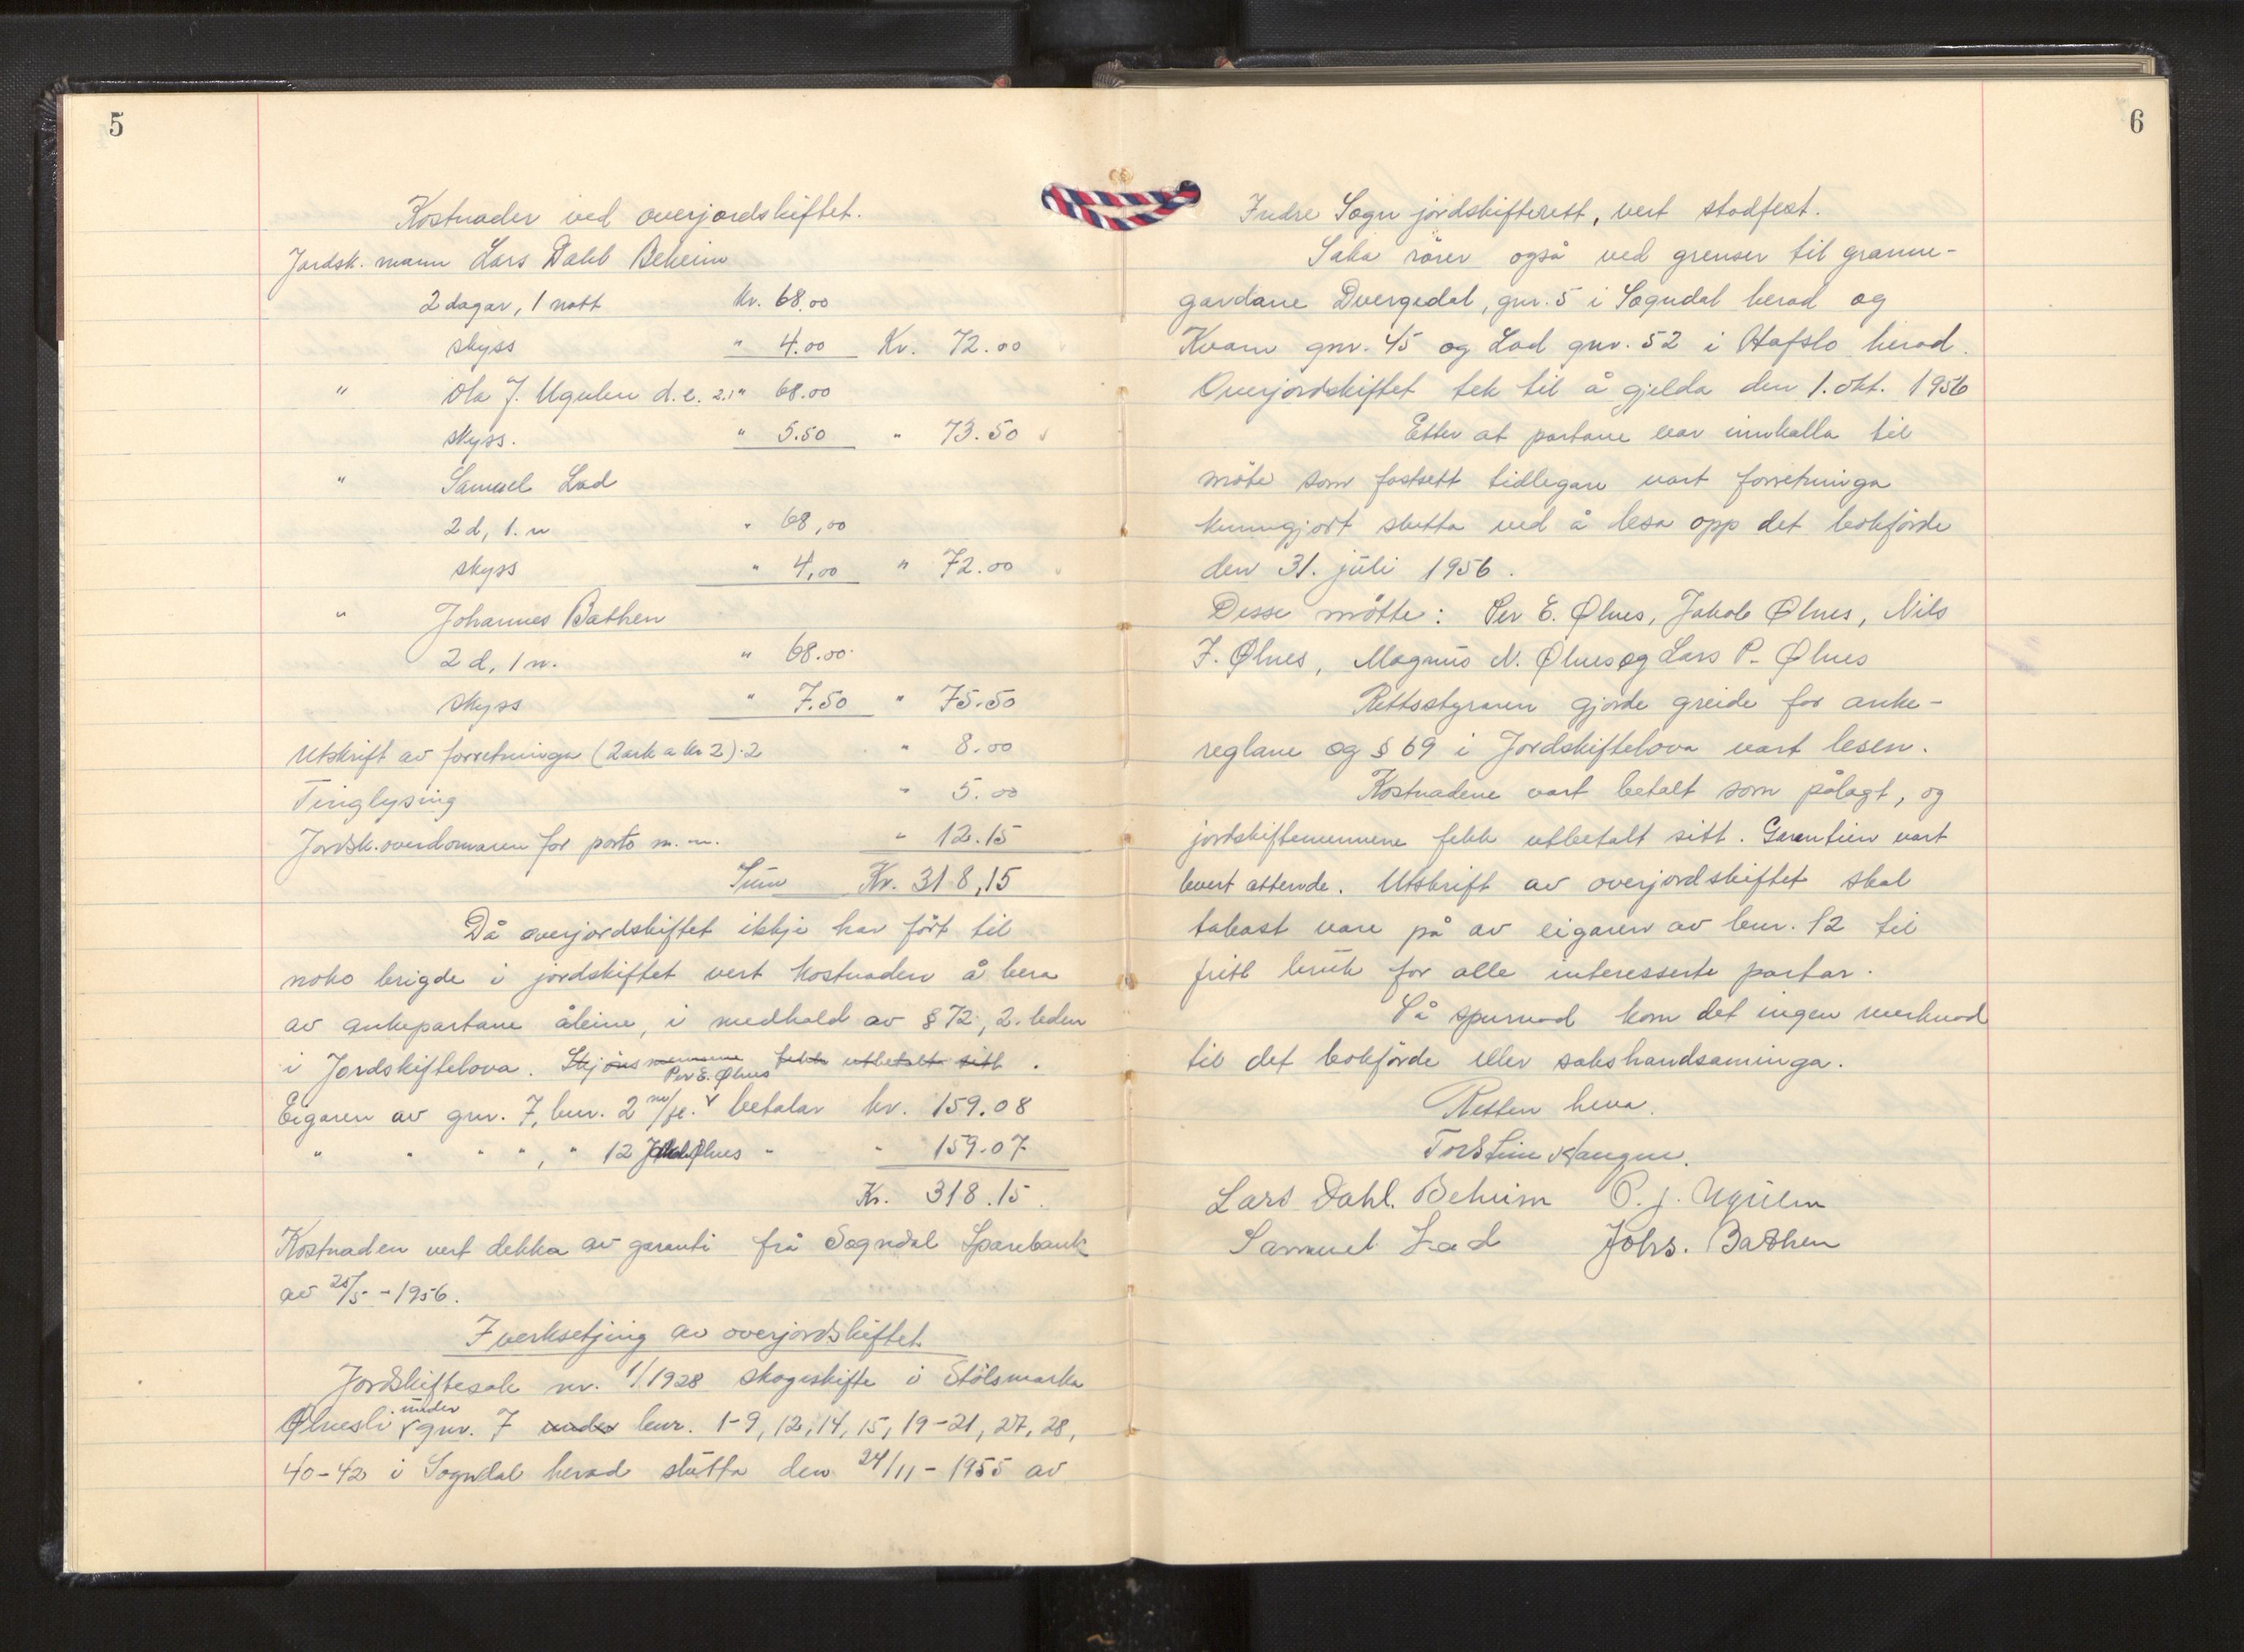 5
Kostnader ved overjordskiftet.
Jordsk. mann Lars Dahl Beheim
2 dagar, 1 natt kr. 68.00
skyss " 4.00 Kr. 72.00
" Ola J. Ugulen d.e. 2.1 " 68.00
skyss. " 5.50 " 73.50
" Samuel Lad
2 d, 1. n " 68,00
skyss " 4,00 " 72.00
" Johannes Bathen
2 d, 1 n. " 68.00
skyss " 7.50 " 75.50
Utskrift av forretninga (2 ark a kr 2)·2 " 8.00
Tinglysing " 5.00
Jordsk.overdomaren for porto m.m. " 12.15
Sum Kr. 318,15
Då overjordskiftet ikkje har ført til
noko brigde i jordskiftet vert kostnaden å bera
av ankepartane åleine, i medhald av § 72, 2. leden
i Jordskiftelova. Skjönsmennene fekk utbetalt sitt.
Per E. Ølnes
Eigaren av gnr. 7, bnr. 2 m/fl. betalar kr. 159.08
" " " ", " 12 Jakob Ølnes " " 159.07
Kr. 318.15.
Kostnaden vert dekka av garanti frå Sogndal Sparebank
av 25/5 - 1956.
Iverksetjing av overjordskiftet.
Jordskiftesak nr. 1/1928 skogskifte i Stölsmarka
Ølnesli under gnr. 7 under bnr. 1-9, 12, 14, 15, 19-21, 27, 28,
40-42 i Sogndal herad slutta den 24/11 - 1955 av
6
Indre Sogn jordskifterett, vert stadfest.
Saka rörer også ved grenser til granne-
gardane Dvergedal, gnr. 5 i Sogndal herad og
Kvam gnr. 45 og Lad gnr. 52 i Hafslo herad.
Overjordskiftet tek til å gjelda den 1. okt. 1956
Etter at partane var innkalla til
möte som fastsett tidlegare vart forretninga
kunngjort slutta ved å lesa opp det bokförde
den 31. juli 1956.
Desse møtte: Per E. Ølnes, Jakob Ølnes, Nils
J. Ølnes, Magnus N. Ølnes og Lars P. Ølnes
Rettsstyraren gjorde greide for anke-
reglane og § 69 i Jordskiftelova vart lesen.
Kostnadene vart betalt som pålagt, og
jordskiftemennene fekk utbetalt sitt. Garantien vart
levert attende. Utskrift av overjordskiftet skal
takast vare på av eigaren av bnr. 12 til
fritt bruk for alle interesserte partar.
På spurnad kom det ingen merknad
til det bokförde eller sakshandsaminga.
Retten heva.
Torstein Haugen.
Lars Dahl. Beheim O. J. Ugulen
Samuel Lad Johs. Bathen